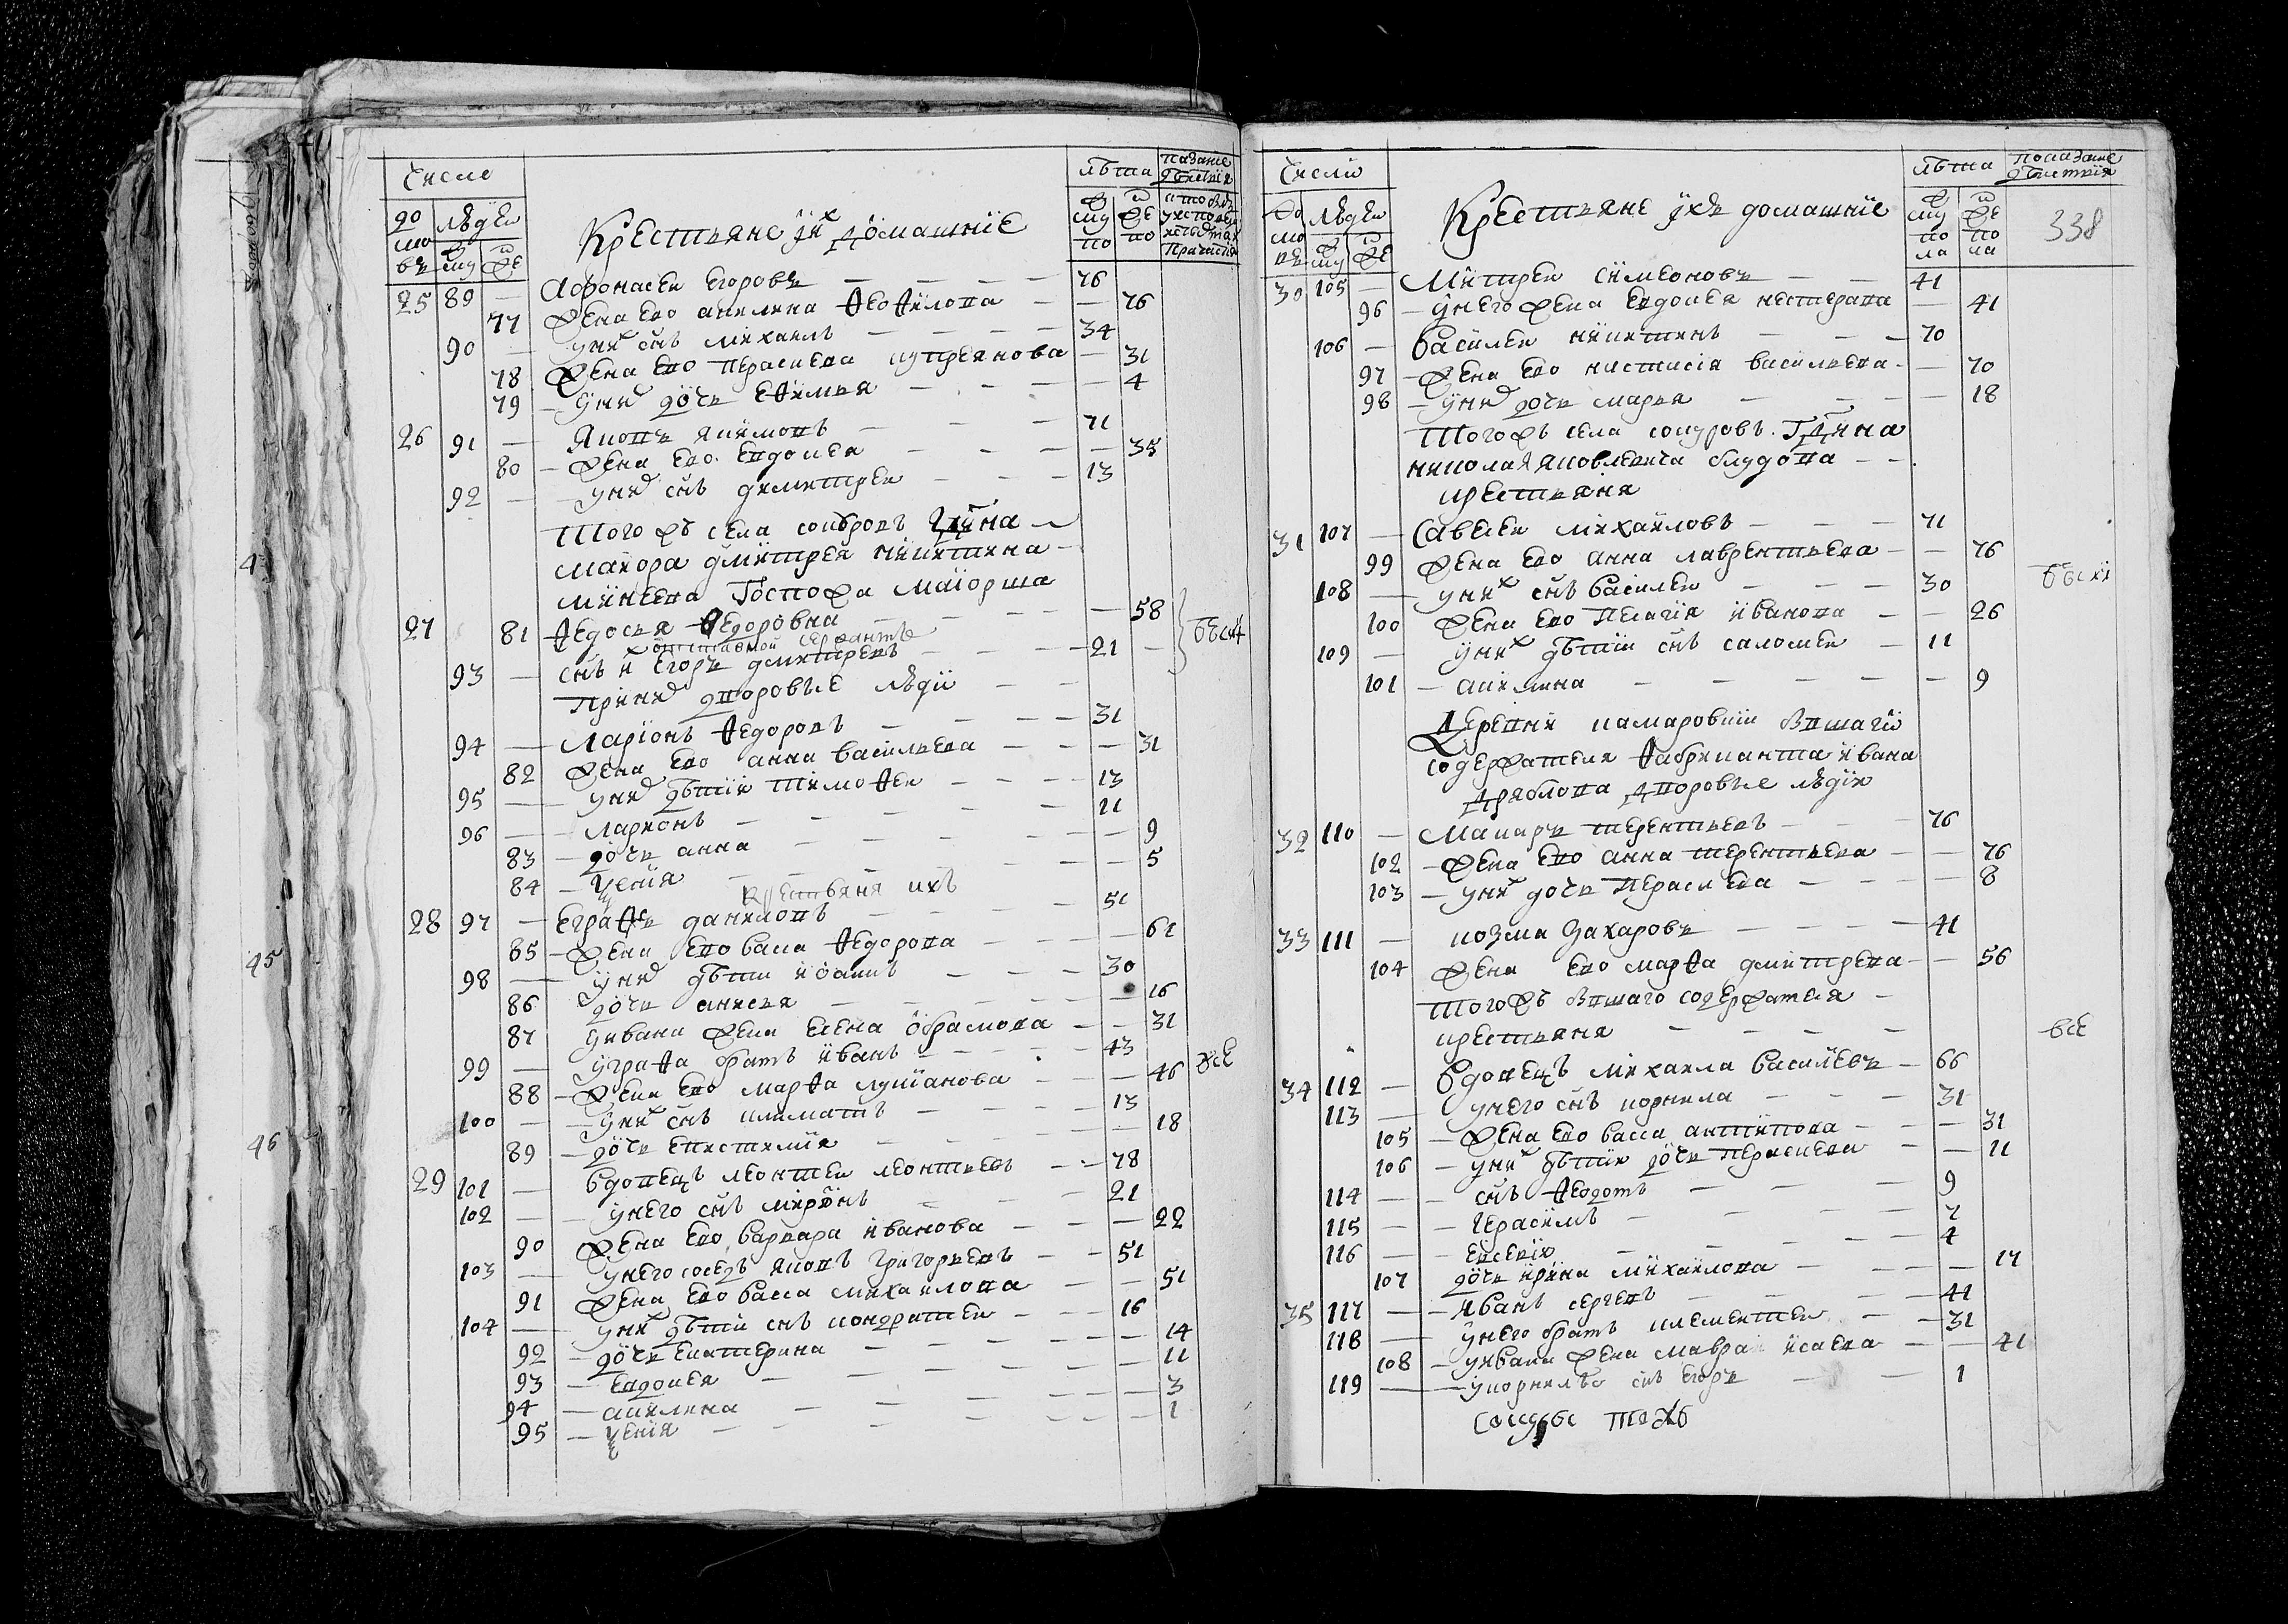 Число
лѣта
показание дѣйствия
домовъ
людей
муж
же
мужпо
жепо
Крестьяне и ихъ домашние
25 89 — Афонасей Егоровъ — 76
77 Жена ево акилина Феофилова — 76
90 — у них снъ михаилъ — 34
78 Жена ево Параскева куприянова — 31
79 — у них дочь Ефимья — 4
26 91 — Яковъ якимовъ — 71
80 — Жена ево Евдокея — 35
92 — у них снъ димитрей — 13
Тогожъ села
маиора дмитрея никитина
Госпожа маиорша
27 81 Федосья Федоровна — 58
отставной сержантъ
93 — снъ ея Егоръ дмитревъ — 21
При них дворовые люди
94 — Ларионъ Федоровъ — 31
82 Жена ево анна васильева — 31
95 — у них дѣти тимофей — 13
96 — Ларионъ — 11
83 — дочь анна — 9
84 — Ксения — 5
Крестьяня ихъ
28 97 — Еграфъ даниловъ — 51
85 — Жена ево васа Федорова — 61
98 — у них дѣти иванъ — 30
86 дочь анисья — 16
87 у ивана жена Елена абрамова — 31
99 — у графа братъ иванъ — 43
все
88 — Жена ево марфа лукианова — 46
100 — у них снъ — 13
89 — дочь епистимия — 18
29 101 — вдовецъ леонтей леонтьевъ — 78
102 — у него снъ миронъ — 21
90 Жена ево варвара иванова — 22
103 — у него соседъ яковъ григорьевъ — 51
91 Жена ево васса михаилова — 51
104 — у них дѣти снъ кондратей — 16
92 — дочь екатерина — 14
93 — Евдокея — 11
94 — акилина — 3
95 — Ксения — 1
Число
лѣта
показание дѣйствия
338
домовъ
людей
муж
же
мужпола
жепола
Крестьяне ихъ домашние
30 105 — Митрей симеоновъ — 41
96 — у него жена евдокея нестерова — 41
106 — василей никитинъ — 70
97 — Жена ево настасия васильева — 70
98 — у них дочь марья — 18
Тогожъ села
николая яковлевича блудова
крестьяня
31 107 — Савелей михаиловъ — 71
99 Жена ево анна лаврентьева — 76
108 — у них снъ василей — 30
100 Жена ево Пелагия иванова — 26
109 — у них дѣти снъ саломей — 11
101 — акилина — 9
Деревни камаровки
содержателя фабриканта ивана
дряблова дворовые людии
32 110 — Макаръ терентьевъ — 76
102 — Жена ево анна терентьева — 76
103 — у них дочь Параскева — 8
33 111 — козма Захаровъ — 41
104 Жена ево марфа дмитрева — 56
Тогожъ содержателя
крестьяня
все
34 112 — вдовецъ михаила василевъ — 66
113 — у него снъ корнила — 31
105 — Жена ево васса антипова — 31
106 — у них дѣти дочь Параскева — 11
114 — снъ федотъ — 9
115 — Герасимъ — 7
116 — Евсевий — 4
107 дочь ирина михаилова — 17
35 117 — Иванъ сергевъ — 41
118 — у него братъ клементей — 31
108 — у ивана жена мавра исаева — 41
119 — у корнилы снъ Егоръ — 1